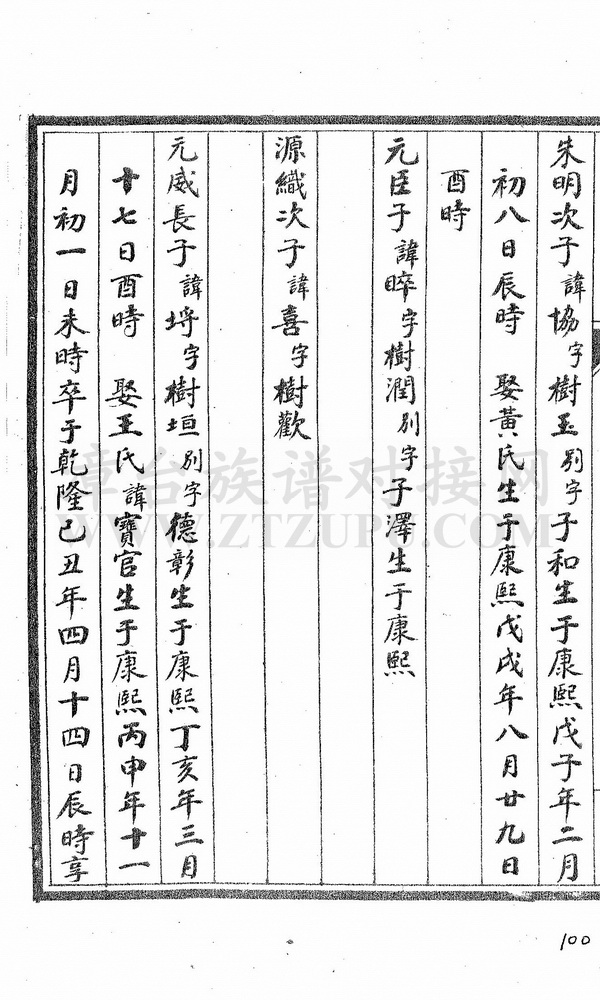 朱明次子諱協字樹玉別字子和生于康熙戊子年二月
初八日辰時　娶黃氏生于康熙戊戌年八月廿九日
酉時
元臣子諱睟字樹潤別字子澤生于康熙
源織次子諱喜字樹歡
元威長子諱埓字樹垣別字德彰生于康熙丁亥年三月
十七日酉時　娶王氏諱寶官生于康熙丙申年十一
月初一日未時卒于乾隆己丑年四月十四日辰時享
漳台族谱对接网
WWW.ZTZUPU.COM
100